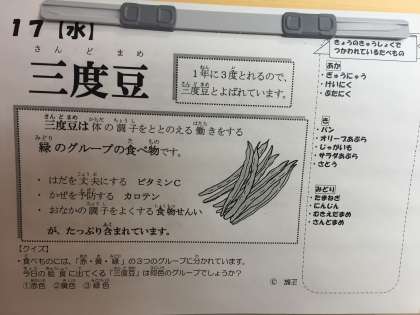 17【水】
さんどまめ
三度豆
1年に3度とれるので、
三度豆とよばれています。
三度豆は体の調子をととのえる働きをする
緑のグループの食べ物です。
・はだを丈夫にする ビタミンC
・かぜを予防する カロテン
・おなかの調子をよくする食物せんい
が、たっぷり含まれています。
【クイズ】
・食べものには、「赤・黄・緑」の3つのグループに分かれています。
今日の給食に出てくる「三度豆」は何色のグループでしょうか?
①赤色 ②黄色 ③緑色
きょうのきゅうしょくで
つかわれているたべもの
あか
・ぎゅうにゅう
・けいにく
・ぶたにく
き
・パン
・オリーブあぶら
・じゃがいも
・サラダあぶら
・さとう
みどり
・たまねぎ
・にんじん
・むきえだまめ
・さんどまめ